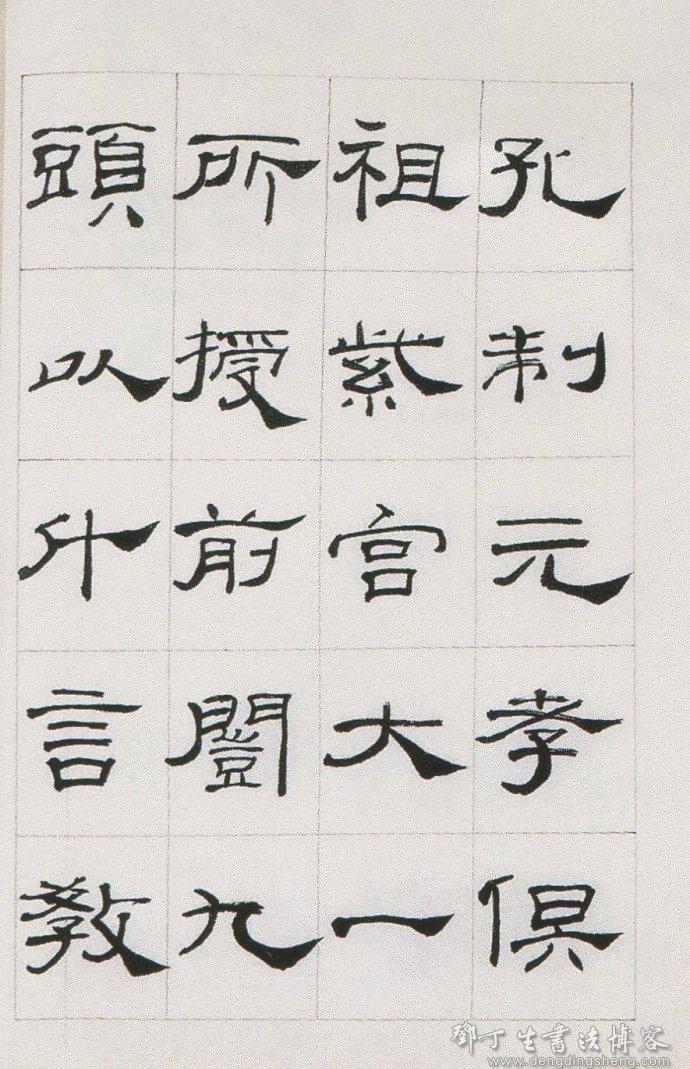 孔制元孝俱
祖紫宮大一
所授前闓九
頭以什言教
鄧丁生書法博客
www.dengdingsheng.com